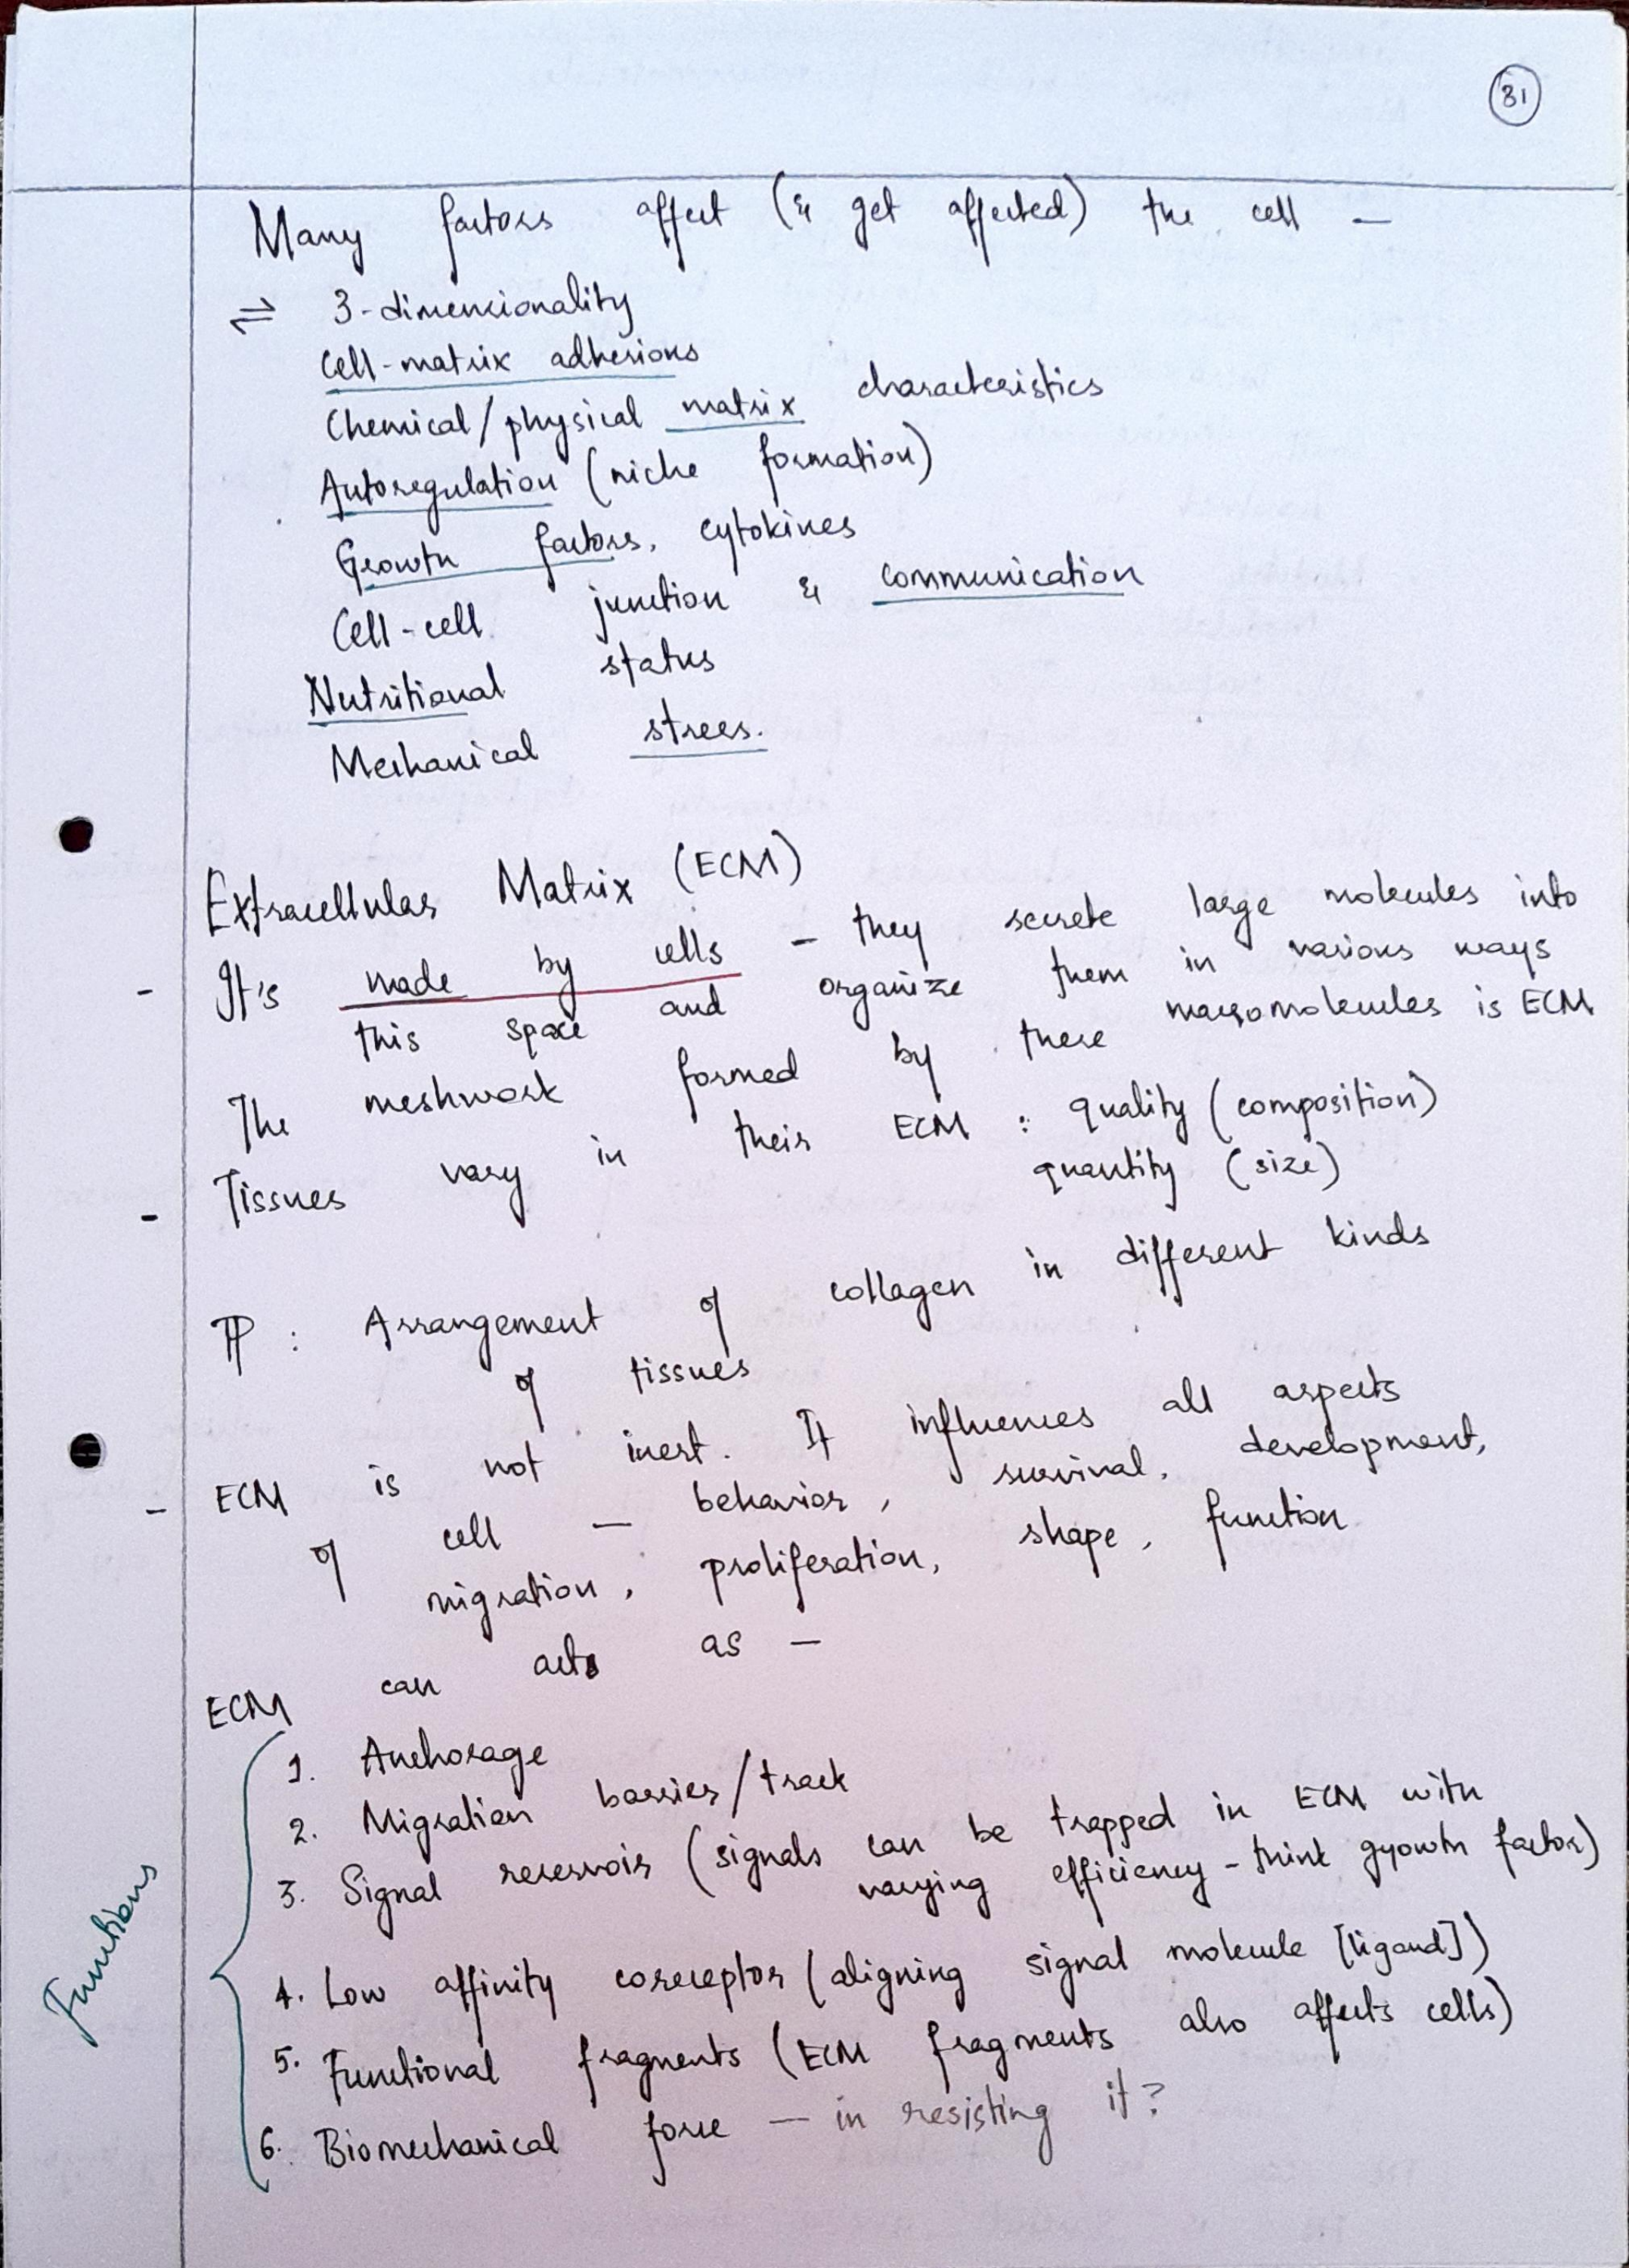 31
Many factors affect (& get affected) the cell —
⇌ 3-dimensionality
Cell-matrix adhesions
Chemical/physical matrix characteristics
Autoregulation (niche formation)
Growth factors, cytokines
Cell-cell junction & communication
Nutritional status
Mechanical stress.
Extracellular Matrix (ECM)
- It's made by cells - they secrete large molecules into
this space and organize them in various ways
The meshwork formed by these macromolecules is ECM
- Tissues vary in their ECM : quality (composition)
quantity (size)
PP : Arrangement of collagen in different kinds
of tissues
- ECM is not inert. It influences all aspects
of cell — behavior, survival, development,
migration, proliferation, shape, function
ECM can acts as —
Functions
1. Anchorage
2. Migration barrier/track
3. Signal reservoir (signals can be trapped in ECM with
varying efficiency - think gyowth factor)
4. Low affinity coreceptor (aligning signal molecule [ligand])
5. Functional fragments (ECM fragments also affects cells)
6. Biomechanical force — in resisting it?